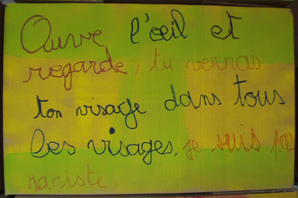 Ouvre l'œil et
regarde, tu verras
ton visage dans tous
les visages, je suis pas
raciste